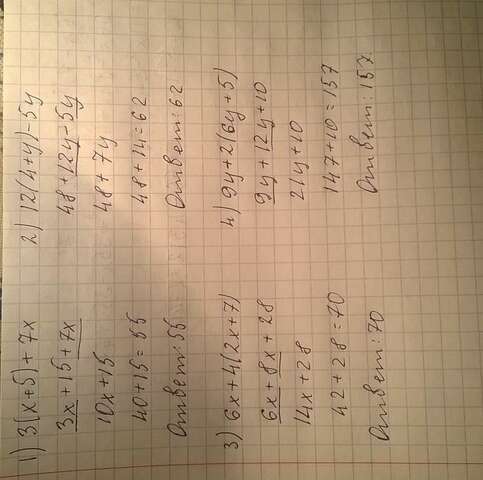 1) 3(x+5)+7x
3x+15+7x
10x+15
40+15=55
Ответ: 55
2) 12(4+y)-5y
48+12y-5y
48+7y
48+14=62
Ответ: 62
3) 6x+4(2x+7)
6x+8x+28
14x+28
42+28=70
Ответ: 70
4) 9y+2(6y+5)
9y+12y+10
21y+10
147+10=157
Ответ: 157.